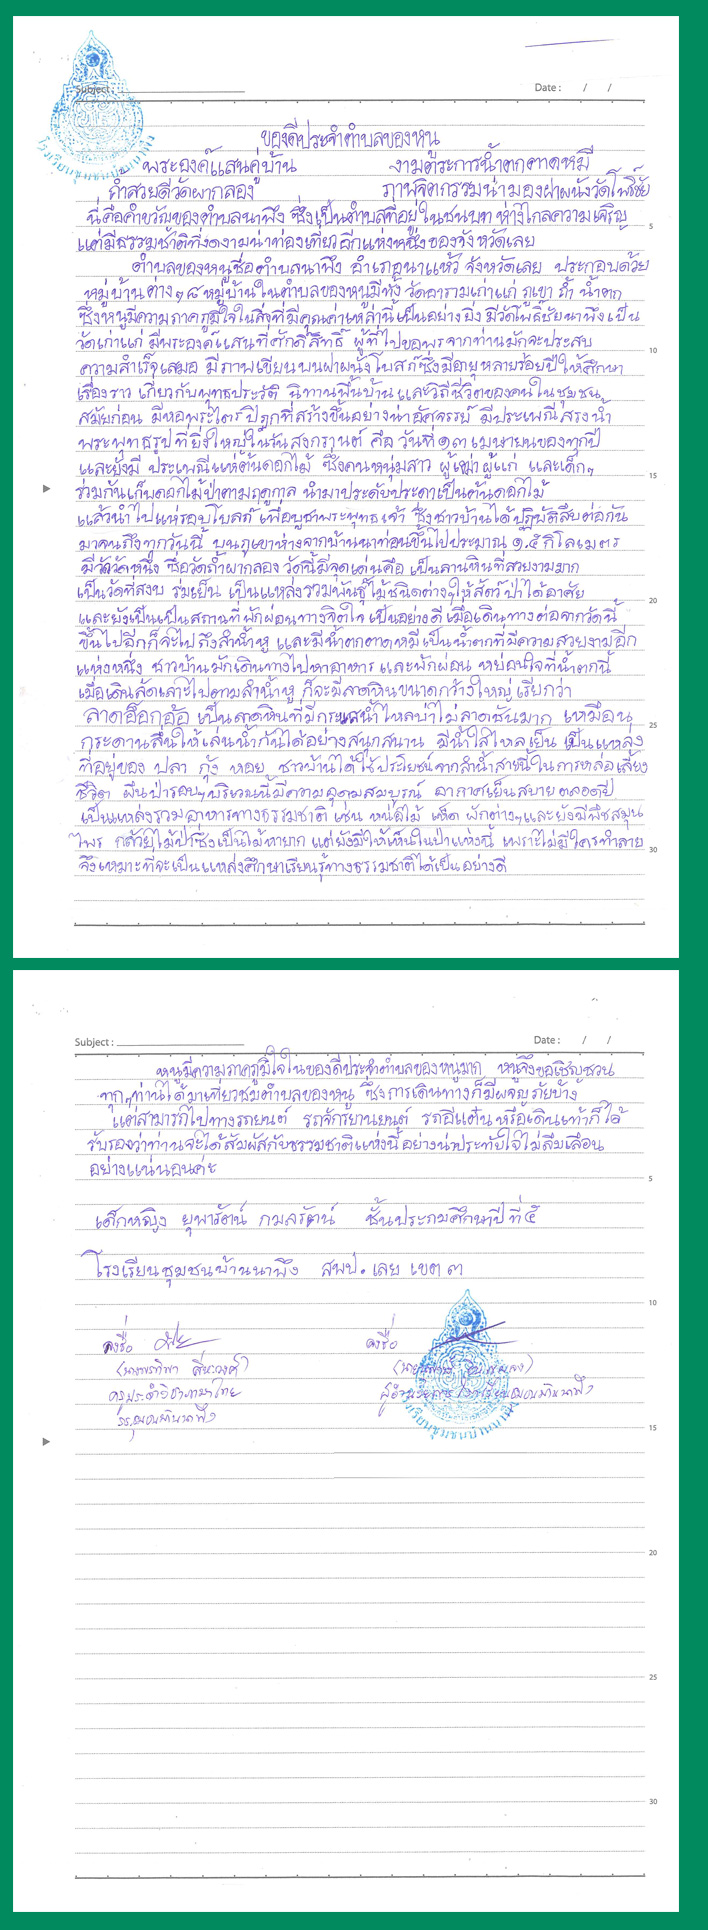 Subject :
Date : / /
ของดีประจำตำบลของหนู
พระองค์แสนคู่บ้าน งามตระการน้ำตกตาดหมี
ถ้ำสวยดีวัดผากลอง ภาพจิตกรรมน่ามองฝาผนังวัดโพธิ์ชัย
นี่คือคำขวัญของตำบลนาพึง ซึ่งเป็นตำบลที่อยู่ในชนบท ห่างไกลความเจริญ
5
แต่มีธรรมชาติที่งดงามน่าท่องเที่ยวอีกแห่งหนึ่งของจังหวัดเลย
ตำบลของหนูชื่อตำบลนาพึง อำเภอนาแห้ว จังหวัดเลย ประกอบด้วย
หมู่บ้านต่างๆ ๘ หมู่บ้านในตำบลของหนูมีทั้ง วัดอารามเก่าแก่ ภูเขา ถ้ำ น้ำตก
ซึ่งหนูมีความภาคภูมิใจในสิ่งที่มีคุณค่าเหล่านี้เป็นอย่างยิ่ง มีวัดโพธิ์ชัยนาพึงเป็น
วัดเก่าแก่ มีพระองค์แสนที่ศักดิ์สิทธิ์ ผู้ที่ไปขอพรจากท่านมักจะประสบ
10
ความสำเร็จเสมอ มีภาพเขียนบนฝาผนังโบสถ์ซึ่งมีอายุหลายร้อยปีให้ศึกษา
เรื่องราว เกี่ยวกับพุทธประวัติ นิทานพื้นบ้าน และวิถีชีวิตของคนในชุมชน
สมัยก่อน มีหอพระไตรปิฎกที่สร้างขึ้นอย่างน่าอัศจรรย์ มีประเพณีสรงน้ำ
พระพุทธรูปที่ยิ่งใหญ่ในวันสงกรานต์ คือ วันที่ ๑๓ เมษายนของทุกปี
และยังมี ประเพณีแห่ต้นดอกไม้ ซึ่งคนหนุ่มสาว ผู้เฒ่าผู้แก่ และเด็กๆ
15
ร่วมกันเก็บดอกไม้ป่าตามฤดูกาล นำมาประดับประดาเป็นต้นดอกไม้
แล้วนำไปแห่รอบโบสถ์ เพื่อบูชาพระพุทธเจ้า ซึ่งชาวบ้านได้ปฏิบัติสืบต่อกัน
มาจนถึงทุกวันนี้ บนภูเขาห่างจากบ้านนาท่อนขึ้นไปประมาณ ๑.๕ กิโลเมตร
มีวัดวัดหนึ่ง ชื่อวัดถ้ำผากลอง วัดนี้มีจุดเด่นคือ เป็นลานหินที่สวยงามมาก
เป็นวัดที่สงบ ร่มเย็น เป็นแหล่งรวมพันธุ์ไม้ชนิดต่างๆให้สัตว์ป่าได้อาศัย
20
และยังเป็นเป็นสถานที่พักผ่อนทางจิตใจ เป็นอย่างดี เมื่อเดินทางต่อจากวัดนี้
ขึ้นไปอีกก็จะไปถึงลำน้ำหู และมีน้ำตกตาดหมีเป็นน้ำตกที่มีความสวยงามอีก
แห่งหนึ่ง ชาวบ้านมักเดินทางไปหาอาหาร และพักผ่อน หย่อนใจที่น้ำตกนี้
เมื่อเดินลัดเลาะไปตามลำน้ำหู ก็จะมีลาดหินขนาดกว้างใหญ่ เรียกว่า
ลาดอ็อกอ้อ เป็นลาดหินที่มีกระแสน้ำไหลบ่าไม่ลาดชันมาก เหมือน
25
กระดานลื่นให้เล่นน้ำกันได้อย่างสนุกสนาน มีน้ำใสไหลเย็น เป็นแหล่ง
ที่อยู่ของ ปลา กุ้ง หอย ชาวบ้านได้ใช้ประโยชน์จากลำน้ำสายนี้ในการหล่อเลี้ยง
ชีวิต ผืนป่ารอบๆบริเวณนี้มีความอุดมสมบูรณ์ อากาศเย็นสบายตลอดปี
เป็นแหล่งรวมอาหารทางธรรมชาติ เช่น หน่อไม้ เห็ด ผักต่างๆและยังมีพืชสมุน
ไพร กล้วยไม้ป่าซึ่งเป็นไม้หายาก แต่ยังมีให้เห็นในป่าแห่งนี้ เพราะไม่มีใครทำลาย
30
จึงเหมาะที่จะเป็นแหล่งศึกษาเรียนรู้ทางธรรมชาติได้เป็นอย่างดี
Subject :
Date : / /
หนูมีความภาคภูมิใจในของดีประจำตำบลของหนูมาก หนูจึงขอเชิญชวน
ทุกๆท่านได้มาเที่ยวชมตำบลของหนู ซึ่งการเดินทางก็มีผจญภัยบ้าง
แต่สามารถไปทางรถยนต์ รถจักรยานยนต์ รถอีแต๋น หรือเดินเท้าก็ได้
รับรองว่าท่านจะได้สัมผัสกับธรรมชาติแห่งนี้อย่างน่าประทับใจไม่ลืมเลือน
อย่างแน่นอนค่ะ
5
เด็กหญิง ยุพารัตน์ กมลรัตน์ ชั้นประถมศึกษาปีที่ ๕
โรงเรียนชุมชนบ้านนาพึง สพป. เลย เขต ๓
10
ลงชื่อ ลงชื่อ
ครูประจำวิชาภาษาไทย ผู้อำนวยการโรงเรียนชุมชนบ้านนาพึง
รร.ชุมชนบ้านนาพึง
โรงเรียนชุมชนบ้านนาพึง
15
20
25
30